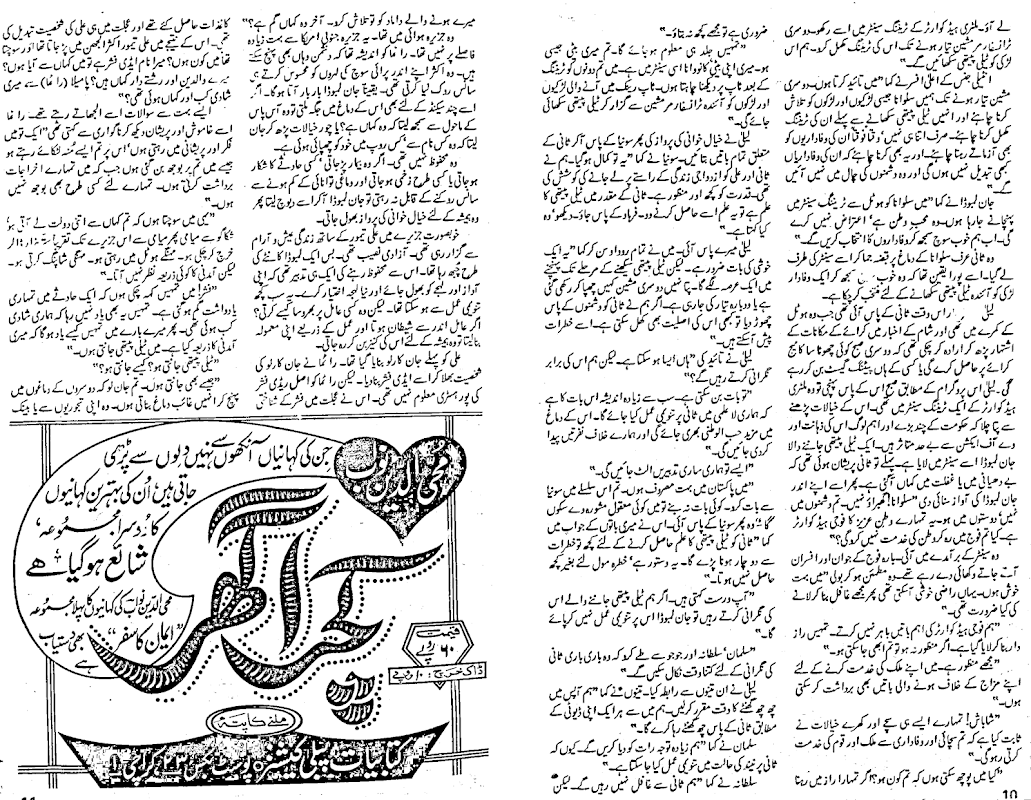 لے آؤ۔ ملٹری ہیڈ کوارٹر کے ٹریننگ سینٹر میں اسے رکھو۔ دوسری
ٹرانسفارمر مشین تیار ہونے تک اس کی ٹریننگ مکمل کرو۔ ہم اس
لڑکی کو ٹیلی پیتھی سکھائیں گے۔"
انٹیلی جنس کے اعلیٰ افسر نے کہا "میں تائید کرتا ہوں۔ دوسری
مشین تیار ہونے تک ہمیں سلوانا جیسی لڑکیوں اور لڑکوں کو تلاش
کرنا چاہئے اور انہیں ٹیلی پیتھی سکھانے سے پہلے ان کی ٹریننگ
مکمل کرنا چاہئے۔ صرف اتنا ہی نہیں' وقتاً فوقتاً ان کی وفاداریوں کو
بھی آزماتے رہنا چاہئے۔ اور یہ بھی کرنا چاہئے کہ ان کی وفاداریاں
کبھی تبدیل نہیں ہوں گی اور وہ دشمنوں کی چال میں نہیں آئیں
گے۔"
جان لمبوڈا نے کہا "میں سلوانا کو ہوٹل سے ٹریننگ سینٹر میں
پہنچانے جا رہا ہوں۔ وہ محب وطن ہے' اعتراض نہیں کرے
گی۔ اب ہم خوب سوچ سمجھ کر وفاداروں کا انتخاب کریں گے۔"
وہ ثانی عرف سلوانا کے دماغ پر قبضہ جما کر اسے سینٹری طرف
لے گیا۔ اسے پورا یقین تھا کہ وہ خوب سوچ سمجھ کر ایک وفادار
لڑکی کو آئندہ ٹیلی پیتھی سکھانے کے لئے منتخب کر چکا ہے۔
کے کمرے میں تھی اور شام کے اخبار میں کرائے کے مکانات کے
اشتہار پڑھ کر ارادہ کر چکی تھی کہ دوسری صبح کوئی چھوٹا سا کاٹیج
کرائے پر حاصل کرے گی یا کسی کے ہاں پیئنگ گیسٹ بن کر رہے
گی۔ لیلیٰ اس پروگرام کے مطابق صبح اس کے پاس پہنچی تو وہ ملٹری
ہیڈ کوارٹر کے ایک ٹریننگ سینٹر میں تھی۔ اس کے خیالات پڑھنے
سے پتا چلا کہ حکومت کے چند بڑے اور اہم لوگ اس کی ذہانت اور
جان لمبوڈا اسے سینٹر میں لایا ہے۔ پہلے تو ثانی پریشان ہوئی تھی کہ
بے دھیانی میں یا غفلت میں کہاں آ گئی ہے۔ پھر اسے اپنے اندر
جان لمبوڈا کی آواز سنائی دی "سلوانا! گھبراؤ نہیں۔ تم دشمنوں میں
نہیں' دوستوں میں ہو۔ یہ تمہارے وطن عزیز کا فوجی ہیڈ کوارٹر
ہے۔ کیا تم فوج میں رہ کر وطن کی خدمت نہیں کرو گی؟"
وہ سینٹر کے برآمدے میں آئی۔ یہاں فوج کے جوان اور افسران
آتے جاتے دکھائی دے رہے تھے۔ وہ مطمئن ہو کر بولی "میں بہت
خوش ہوں۔ یہاں راضی خوشی آ سکتی تھی پھر مجھے غافل بنا کر لانے
کی کیا ضرورت تھی۔"
"ہم فوجی ہیڈ کوارٹر کی اہم باتیں باہر نہیں کرتے۔ تمہیں راز
دار بنا کر لایا گیا ہے۔ اگر منظور نہ ہو تو تم ابھی جا سکتی ہو۔"
"مجھے منظور ہے۔ میں اپنے ملک کی خدمت کرنے کے لئے
اپنے مزاج کے خلاف ہونے والی باتیں بھی برداشت کر سکتی
ہوں۔"
"شاباش! تمہارے ایسے ہی سچے اور کھرے خیالات نے
ثابت کیا ہے کہ تم سچائی اور وفاداری سے ملک اور قوم کی خدمت
کرتی رہو گی۔"
"کیا میں پوچھ سکتی ہوں کہ تم کون ہو؟ اگر تمہارا راز میں رہنا
10
ضروری ہے تو مجھے کچھ نہ بتاؤ۔"
"تمہیں جلد ہی معلوم ہو جائے گا۔ تم میری بیٹی جیسی
ہو۔ میری اپنی بیٹی کانووانا اسی سینٹر میں ہے۔ میں تم دونوں کو ٹریننگ
کے بعد ٹاپ پر دیکھنا چاہتا ہوں۔ ٹاپ رینک میں آنے والی لڑکیوں
اور لڑکوں کو آئندہ ٹرانسفارمر مشین سے گزار کر ٹیلی پیتھی سکھائی
جائے گی۔"
لیلیٰ نے خیال خوانی کی پرواز کی پھر سونیا کے پاس آ کر ثانی کے
متعلق تمام باتیں بتائیں۔ سونیا نے کہا "یہ تو کمال ہو گیا۔ ہم نے
ثانی اور علی کو ازدواجی زندگی کے راستے پر لے جانے کی کوشش کی
تھی۔ قدرت کو کچھ اور منظور ہے۔ ثانی کے مقدر میں ٹیلی پیتھی کا
علم ہے تو یہ علم اسے حاصل کرنے دو۔ فرہاد کے پاس جاؤ۔ دیکھو' وہ
کیا کہتا ہے۔"
لیلیٰ میرے پاس آئی۔ میں نے تمام روداد سن کر کہا "یہ ایک
خوشی کی بات ضرور ہے۔ لیکن ٹیلی پیتھی سیکھنے کے مرحلے تک پہنچنے
میں ایک عرصہ لگے گا۔ پتا نہیں دوسری مشین کہیں چھپا کر رکھی گئی
ہے یا دوبارہ تیار کی جا رہی ہے۔ اگر ہم نے ثانی کو دشمنوں کے پاس
چھوڑ دیا تو کبھی اس کی اصلیت بھی کھل سکتی ہے۔ اسے خطرات
پیش آ سکتے ہیں۔"
لیلیٰ نے تائید کی "ہاں' ایسا ہو سکتا ہے۔ لیکن ہم اس کی برابر
نگرانی کرتے رہیں گے؟"
"تو بات بن سکتی ہے۔ سب سے زیادہ اندیشہ اس بات کا ہے
کہ ہماری لاعلمی میں ثانی پر تنویمی عمل کیا جائے گا۔ اس کے دماغ
میں مزید حب الوطنی بھری جائے گی اور ہمارے خلاف نفرتیں پیدا
کر دی جائیں گی۔"
"ایسے تو ہماری ساری تدبیریں الٹ جائیں گی۔"
"میں پاکستان میں بہت مصروف ہوں۔ تم اس سلسلے میں سونیا
سے بات کرو۔ کوئی بات نہ بنے تو میں کوئی معقول مشورہ دے سکوں
گا۔" وہ پھر سونیا کے پاس آئی۔ اس نے میری باتوں کے جواب میں
کہا "ثانی کو ٹیلی پیتھی کا علم حاصل کرنے کے لئے کچھ تو خطرات
سے دو چار ہونا پڑے گا۔ یہ دستور ہے' خطرہ مول لئے بغیر کچھ
حاصل نہیں ہوتا۔"
"آپ درست کہتی ہیں۔ اگر ہم ٹیلی پیتھی جاننے والے اس
کی نگرانی کرتے رہیں تو جان لمبوڈا اس پر تنویمی عمل نہیں کر پائے
گا۔"
"سلمان' سلطانہ اور جوجو سے طے کرو کہ وہ باری باری ثانی
کی نگرانی کے لئے کتنا وقت نکال سکیں گے۔"
لیلیٰ نے ان تینوں سے رابطہ کیا۔ تینوں نے کہا "ہم آپس میں
چھ چھ گھنٹے کا وقت مقرر کر لیں۔ ہم میں سے ہر ایک اپنی ڈیوٹی کے
مطابق ثانی کے پاس چھ گھنٹے رہا کرے گا۔"
سلمان نے کہا "ہم زیادہ توجہ رات کو دیا کریں گے۔ کیوں کہ
ثانی پر نیند کی حالت میں تنویمی عمل کیا جا سکتا ہے۔"
سلطانہ نے کہا "ہم ثانی سے غافل نہیں رہیں گے۔ لیکن
میرے ہونے والے داماد کو تو تلاش کرو۔ آخر وہ کہاں گم ہے؟"
وہ جزیرہ ہوائی میں تھا۔ یہ جزیرہ جنوبی امریکا سے بہت زیادہ
فاصلے پر نہیں تھا۔ را نما کو اندیشہ تھا کہ دشمن وہاں بھی پہنچ سکتے
ہیں۔ وہ اکثر اپنے اندر پرائی سوچ کی لہروں کو محسوس کرتے ہی
سانس روک لیا کرتی تھی۔ یقیناً جان لمبوڈا بار بار آتا ہو گا۔ اگر
اسے چند سیکنڈ کے لئے بھی اس کے دماغ میں جگہ ملتی تو وہ آس پاس
کے ماحول سے سمجھ لیتا کہ وہ کہاں ہے؟ یا چور خیالات پڑھ کر جان
لیتا کہ وہ کس نام سے' کس روپ میں خود کو چھپائی ہوئی ہے۔
وہ محفوظ نہیں تھی۔ اگر وہ بیمار پڑ جاتی' کسی حادثے کا شکار
ہو جاتی یا کسی طرح زخمی ہو جاتی اور دماغی توانائی کے کم ہونے سے
سانس روکنے کے قابل نہ رہتی تو جان لمبوڈا اکر اسے دبوچ لیتا پھر
وہ ہمیشہ کے لئے خیال خوانی کی پرواز بھول جاتی۔
خوبصورت جزیرے میں علی تیمور کے ساتھ زندگی عیش و آرام
سے گزار رہی تھی۔ آزادی نصیب تھی۔ بس ایک لمبوڈا کانٹے کی
طرح چبھ رہا تھا۔ اس سے محفوظ رہنے کی ایک ہی تدبیر تھی کہ اپنی
آواز اور لہجے کو بھول جائے اور نیا لہجہ اختیار کرے۔ یہ سب کچھ
تنویمی عمل سے ہو سکتا تھا۔ لیکن وہ کسی عامل پر بھروسا کیسے کرتی؟
اگر عامل اندر سے شیطان ہوتا اور عمل کے ذریعے اپنی معمولہ
بنا لیتا تو وہ ہمیشہ کے لئے اس کی کنیز بن کر رہ جاتی۔
علی کو پہلے جان کارلو بنایا گیا تھا۔ را نما نے جان کارلو کی
شخصیت بھلا کر اسے ایڈی فشر بنا دیا۔ لیکن را نما کو اصل ریڈی فشر
کی پوری ہسٹری معلوم نہیں تھی۔ اس نے عجلت میں فشر کے شناختی
کاغذات حاصل کئے تھے اور عجلت میں ہی علی کی شخصیت تبدیل کی
تھی۔ اس کے نتیجے میں علی تیمور اکثر الجھن میں پڑ جاتا تھا اور سوچتا
تھا میں کون ہوں؟ میرا نام ایڈی فشر ہے تو میں کہاں سے آیا ہوں؟
میرے والدین اور رشتے دار کہاں ہیں؟ پامیلا (را نما) سے میری
شادی کب اور کہاں ہوئی تھی؟
ایسے بہت سے سوالات اسے الجھاتے رہتے تھے۔ را نما
اسے خاموش اور پریشان دیکھ کر ناگواری سے کہتی تھی "ایک تو میں
فکر اور پریشانی میں رہتی ہوں' اس پر تم ایسے منہ لٹکائے رہتے ہو
جیسے میں تم پر بوجھ بن گئی ہوں جب کہ میں تمہارے اخراجات
برداشت کرتی ہوں۔ تمہارے لئے کسی طرح بھی بوجھ نہیں
ہوں۔"
"یہی میں سوچتا ہوں کہ تم کہاں سے اتنی دولت لے آتی ہو'
شکاگو سے میامی پھر میامی سے اس جزیرے تک تقریباً ہزار ڈالر
خرچ کر چکی ہو۔ مہنگے ہوٹل میں رہتی ہو۔ مہنگی شاپنگ کرتی ہو۔
لیکن آمدنی کا کوئی ذریعہ نظر نہیں آتا۔"
"فشر! میں تمہیں کہہ چکی ہوں کہ ایک حادثے میں تمہاری
یادداشت گم ہو گئی ہے۔ تمہیں یہ بھی یاد نہیں رہا کہ ہماری شادی
کب ہوئی تھی۔ پھر میرے بارے میں تمہیں کیسے یاد ہو گا کہ میری
آمدنی کا ذریعہ کیا ہے۔ میں ٹیلی پیتھی جانتی ہوں۔"
"ٹیلی پیتھی جانتی ہو؟ کیسے جانتی ہو؟"
"جیسے بھی جانتی ہوں۔ تم جان لو کہ دوسروں کے دماغوں میں
پہنچ کر انہیں غائب دماغ بناتی ہوں۔ وہ اپنی تجوریوں سے یا بینک
محی الدین نواب
جن کی کہانیاں آنکھوں سے نہیں دلوں سے پڑھی
جاتی ہیں' اُن کی بہترین کہانیوں
کا دُوسرا مجموعہ'
شائع ہو گیا ہے
محی الدین نواب کی کہانیوں کا پہلا مجموعہ
"ایمان کا سفر"
بھی دستیاب
ہے
کچرا گھر
قیمت
۶۰ روپے
ڈاک خرچ: ۱۰ روپے
ملنے کا پتہ
کتابیات پبلی کیشنز ○ پوسٹ بکس ۲۳ کراچی ۱